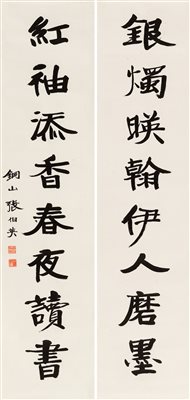 銀燭暎翰伊人磨墨
紅袖添香春夜讀書
銅山張伯英